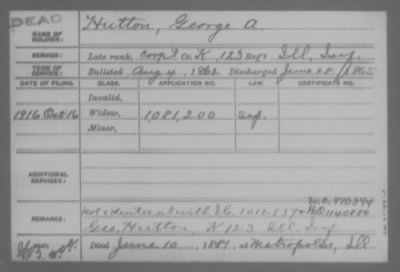 DEAD
NAME OF SOLDIER: Hutton, George A.
SERVICE: Late rank, Corp'l Co. K, 123 Reg't Ill. Inf.
TERM OF SERVICE: Enlisted Aug 4, 1862 Discharged June 28, 1865
DATE OF FILING. CLASS. APPLICATION NO. LAW. CERTIFICATE NO.
Invalid,
1916 Oct 16 Widow, 1,081,200
Minor,
ADDITIONAL SERVICES:
REMARKS: Not identical with I.O. 1012839 & W.O. 1140880
Geo. Hutton, K 123 Ill. Inf.
Died June 10, 1887, at Metropolis, Ill